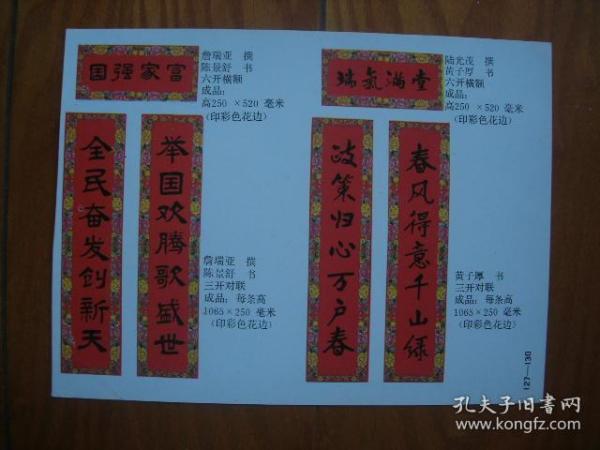 国强家富
詹瑞亚 撰
陈景舒 书
六开横额
成品：
高250 ×520 毫米
（印彩色花边）
瑞氣满堂
陆光茂 撰
黄子厚 书
六开横额
成品：
高250 ×520 毫米
（印彩色花边）
举国欢腾歌盛世
全民奋发创新天
詹瑞亚 撰
陈景舒 书
三开对联
成品：每条高
1065×250 毫米
（印彩色花边）
春风得意千山绿
政策归心万户春
黄子厚 书
三开对联
成品：每条高
1065×250 毫米
（印彩色花边）
127—130
孔夫子旧书网
www.kongfz.com